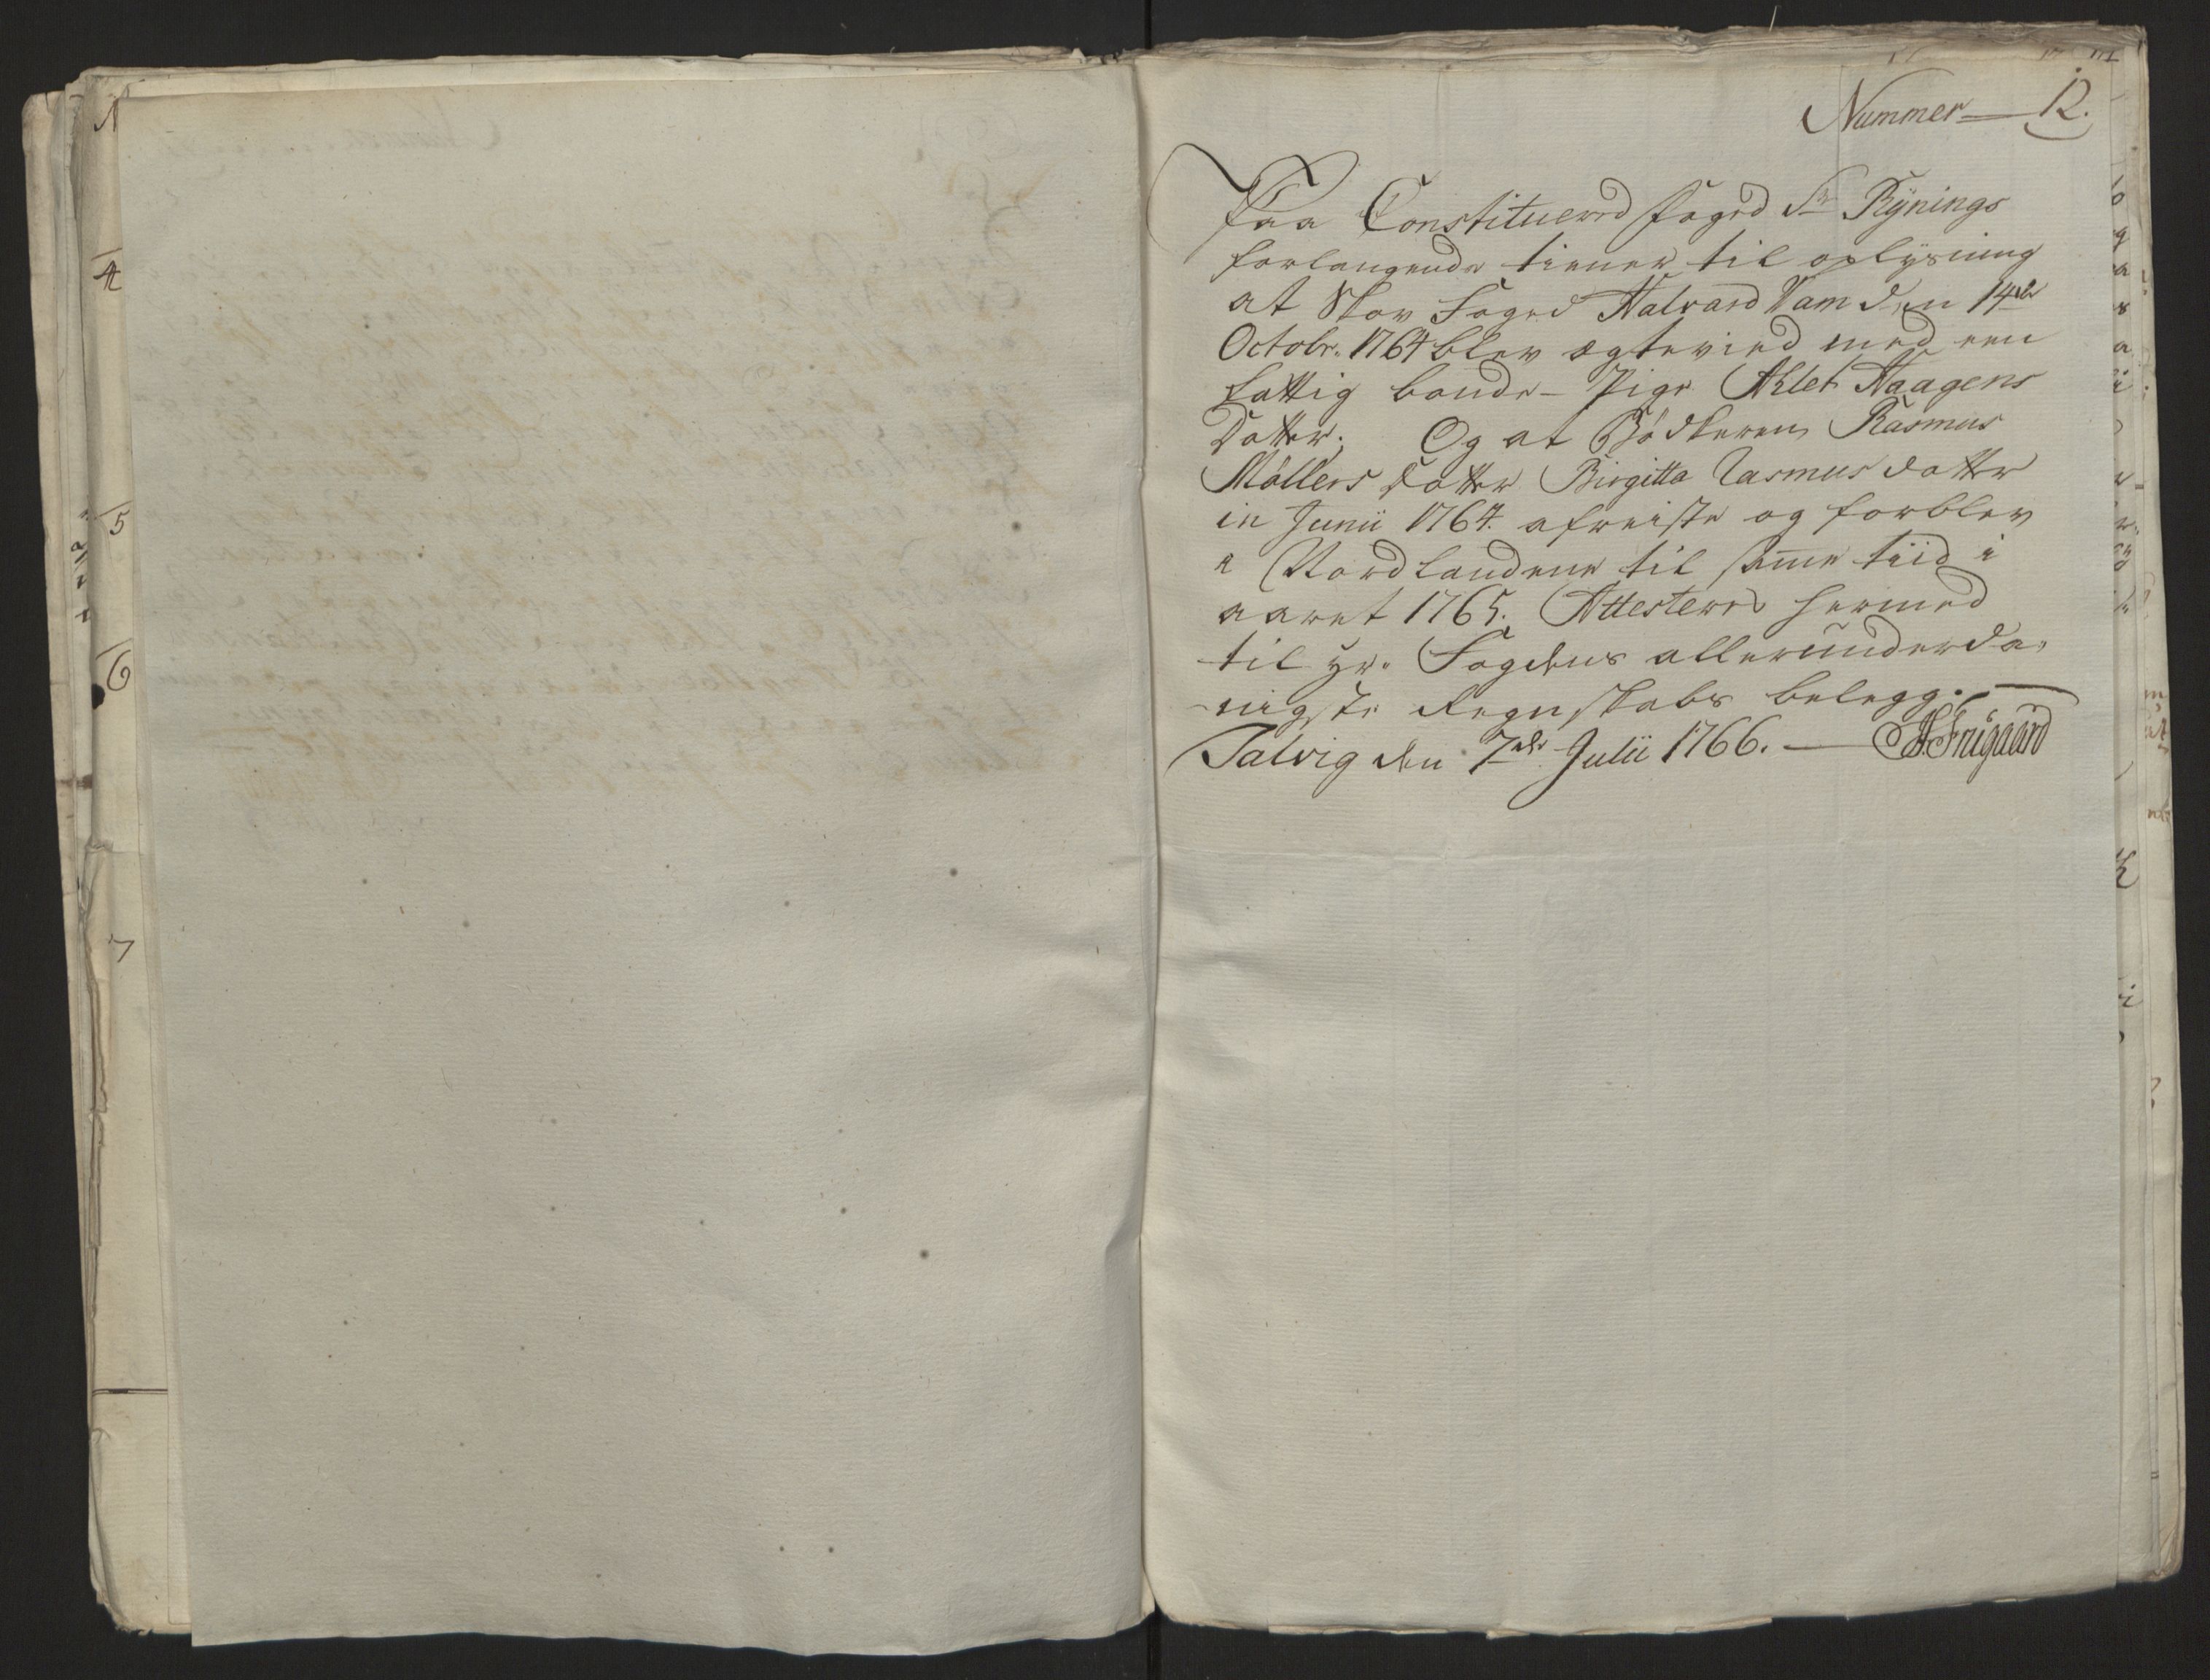 Nummer 12.
Paa Constituered Foged Sr Rÿnings
forlangende tiener til oplÿsning
at Skov Foged Halvard Vam den 14de
Octobr. 1764 blev ægtevied med een
fattig bonde-Pige Ahlet Haagens
Datter. Og at Bødkeren Rasmus
Møllers Datter Birgitta Rasmusdatter
in Junii 1764. afreiste og forblev
i Nordlandene til samme tiid i
aaret 1765. Attesteres hermed
til Hr. Fogdens allerunderda-
nigste Regnskabs belegg.
Talvig den 7de Julii 1766. Friisgaard
4
5
6
7